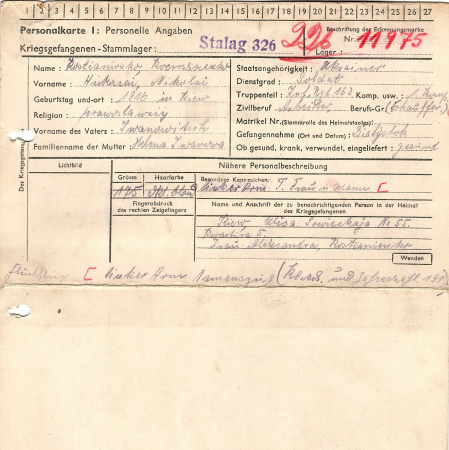 1 2 3 4 5 6 7 8 9 10 11 12 13 14 15 16 17 18 19 20 21 22 23 24 25 26 27
Personalkarte I: Personelle Angaben
Beschriftung der Erkennungsmarke
Kriegsgefangenen-Stammlager: Stalag 326 226 Nr. 11975
Lager:
Des Kriegsgefangenen
Name: Kostianienko
Staatsangehörigkeit: Ukrainer
Vorname: Nikolai
Dienstgrad: Soldat
Truppenteil: Inf. Rgt 163 Komp. usw.:
Geburtstag und -ort: 1916 in Kiew
Zivilberuf: Arbeiter Berufs-Gr.: (Chauffeur)
Religion: prawoslawnij
Matrikel Nr. (Stammrolle des Heimatstaates):
Vorname des Vaters: Iwanowitsch
Gefangennahme (Ort und Datum): Bialystok
Familienname der Mutter: Iwanowa
Ob gesund, krank, verwundet, eingeliefert: gesund
Lichtbild
Nähere Personalbeschreibung
Grösse Haarfarbe
175 dkl. blond
Besondere Kennzeichen: linker Arm T. Frau u. Mann
Fingerabdruck
des rechten Zeigefingers
Name und Anschrift der zu benachrichtigenden Person in der Heimat
des Kriegsgefangenen
Kiew Uliza Sowieckaja No 55.
Kwartira 5.
Frau: Aleksandra Kostianienko
Wenden
linker Arm Namenszug und Jahreszahl